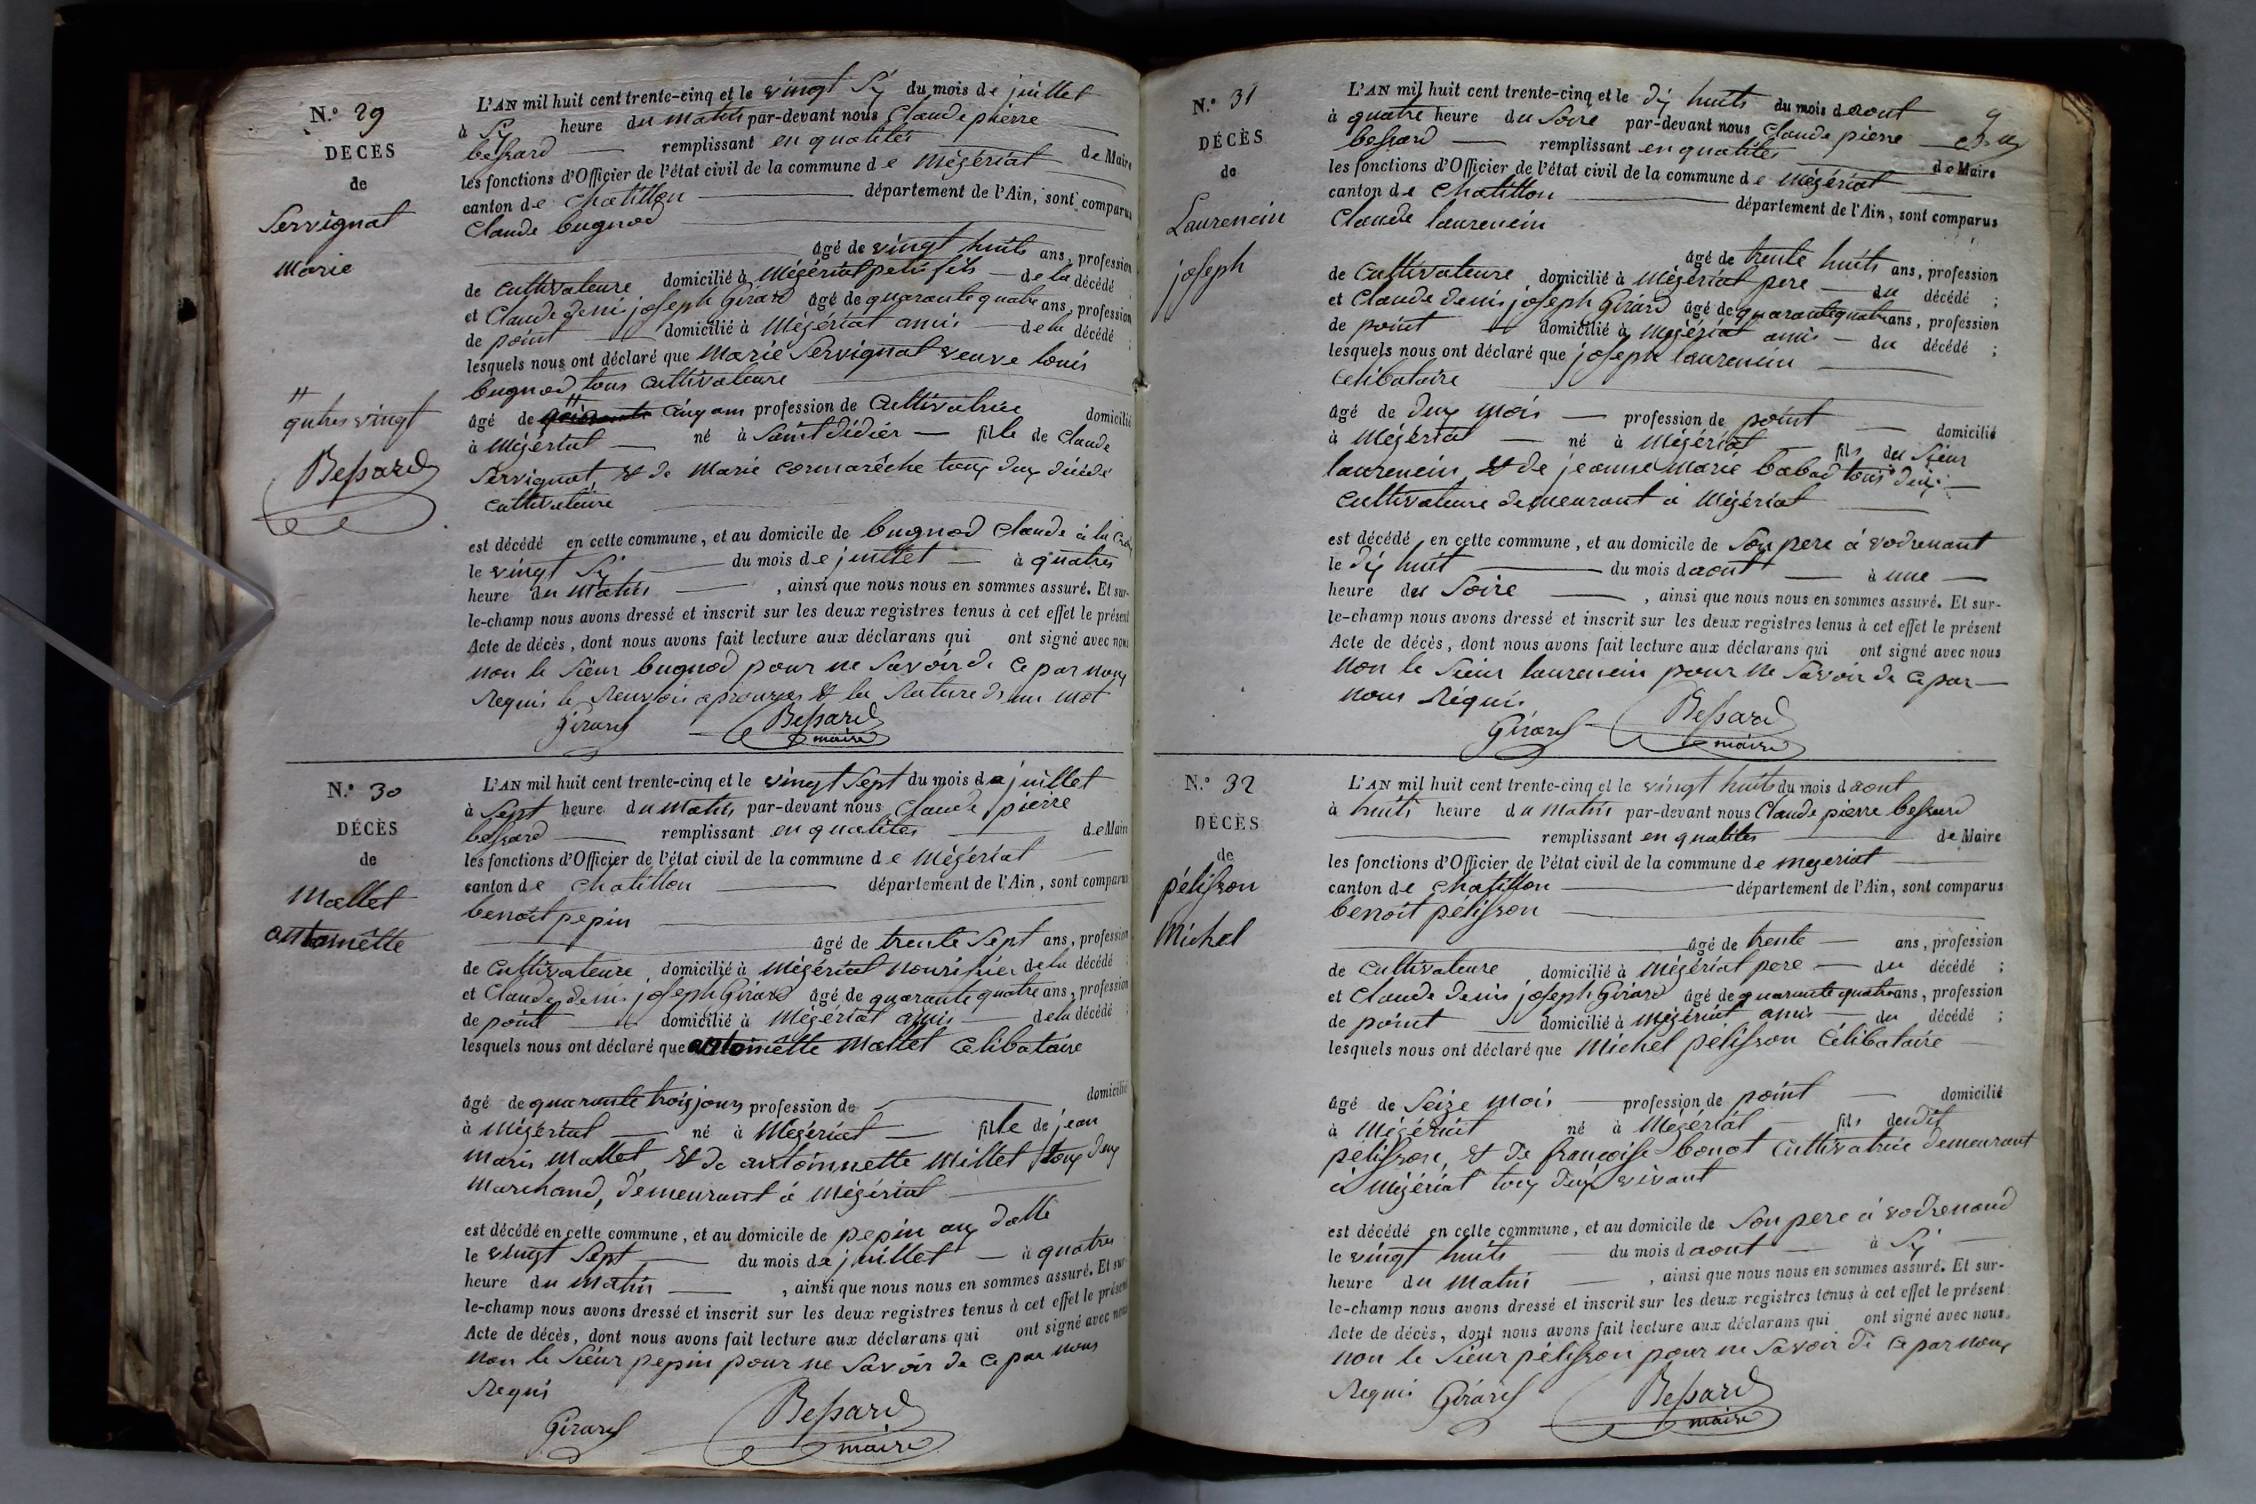 N.° 29
DÉCÈS
de
Servignat
Marie
L'AN mil huit cent trente-cinq et le vingt Six du mois de juillet
à Six heure du Matin par-devant nous Claude pierre
bessard remplissant en qualités de Maire
les fonctions d'Officier de l'état civil de la commune de Mézériat
canton de Chatillon département de l'Ain, sont comparus
Claude bugnod
âgé de vingt huits ans, profession
de Cultivateure domicilié à Mézériat petis fils de la décédé ;
et Claude denis joseph Girard âgé de quarante quatre ans, profession
de point domicilié à Mézériat amis de la décédé ;
lesquels nous ont déclaré que Marie Servignat veuve louis
bugnod tous Cultivateure
quatres vingt
Bessard
âgé de cinq ans profession de Cultivatrice domicilié
à Mézériat né à Saint didier fille de Claude
Servignat, & de Marie cormarêche toux dux décédé
Cultivateure
est décédé en cette commune, et au domicile de bugnod Claude à la
le vingt Six du mois de juillet à quatres
heure du Matin , ainsi que nous nous en sommes assuré. Et sur-
le-champ nous avons dressé et inscrit sur les deux registres tenus à cet effet le présent
Acte de décès, dont nous avons fait lecture aux déclarans qui ont signé avec nous
non le Sieur bugnod pour ne Savoir de ce par nous
Requis le Renvois aprouvés & la Rature d'un mot
Girard Bessard
maire
N.° 30
DÉCÈS
de
Mallet
antoinêtte
L'AN mil huit cent trente-cinq et le vingt Sept du mois de juillet
à Sept heure du Matin par-devant nous Claude pierre
bessard remplissant en qualités de Maire
les fonctions d'Officier de l'état civil de la commune de Mézériat
canton de Chatillon département de l'Ain, sont comparus
benoit pepin
âgé de trente Sept ans, profession
de Cultivateure domicilié à Mézériat Nourisier de la décédé ;
et Claude denis joseph Girard âgé de quarante quatre ans, profession
de point domicilié à Mézériat amis de la décédé ;
lesquels nous ont déclaré que antoinêtte Mallet Celibataire
âgé de quarante trois jours profession de domicilié
à Mézériat né à Mézériat fille de jean
Maris Mallet, & de antoinnette Millet toux dux
Marchand, demeurant à Mézériat
est décédé en cette commune, et au domicile de pepin aux
le vingt Sept du mois de juillet à quatres
heure du Matin , ainsi que nous nous en sommes assuré. Et sur-
le-champ nous avons dressé et inscrit sur les deux registres tenus à cet effet le présent
Acte de décès, dont nous avons fait lecture aux déclarans qui ont signé avec nous
non le Siéur pepin pour ne Savoir de ce par nous
Requis
Girard Bessard
maire
N.° 31
DÉCÈS
de
Laurencin
joseph
L'AN mil huit cent trente-cinq et le dix huits du mois d aout
à quatre heure du Soire par-devant nous Claude pierre
bessard remplissant en qualités de Maire
les fonctions d'Officier de l'état civil de la commune de Mézériat
canton de Chatillon département de l'Ain, sont comparus
Claude laurencin
âgé de trente huits ans, profession
de Cultivateure domicilié à Mézériat pere du décédé ;
et Claude denis joseph Girard âgé de quarante quatre ans, profession
de point domicilié à Mézériat amis du décédé ;
lesquels nous ont déclaré que joseph laurencin
Celibataire
âgé de dux Mois profession de point domicilié
à Mézériat né à Mézériat fils du Sieur
laurencin, & de jeanne Marie babad tous dux
Cultivateure demeurant à Mézériat
est décédé en cette commune, et au domicile de Son pere à vodrenant
le dix huit du mois d aout à une
heure du Soire , ainsi que nous nous en sommes assuré. Et sur-
le-champ nous avons dressé et inscrit sur les deux registres tenus à cet effet le présent
Acte de décès, dont nous avons fait lecture aux déclarans qui ont signé avec nous
non le Sieur laurencin pour ne Savoir de ce par
nous Réquis
Girard Bessard
maire
N.° 32
DÉCÈS
de
pélisson
Michel
L'AN mil huit cent trente-cinq et le vingt huits du mois d aout
à huits heure du Matin par-devant nous Claude pierre bessard
remplissant en qualités de Maire
les fonctions d'Officier de l'état civil de la commune de mezeriat
canton de Chatillon département de l'Ain, sont comparus
benoit pélisson
âgé de trente ans, profession
de Cultivateure domicilié à Mézériat pere du décédé ;
et Claude denis joseph Girard âgé de quarante quatre ans, profession
de point domicilié à Mézériat amis du décédé ;
lesquels nous ont déclaré que Michel pelisson Célibataire
âgé de Seize Mois profession de point domicilié
à Mézériat né à Mézériat fils dudit
pélisson, & de françoise bonot Cultivatrice demeurant
à Mézériat toux dux vivant
est décédé en cette commune, et au domicile de Son pere à vodrenand
le vingt huits du mois d aout à Six
heure du Matin , ainsi que nous nous en sommes assuré. Et sur-
le-champ nous avons dressé et inscrit sur les deux registres tenus à cet effet le présent
Acte de décès, dont nous avons fait lecture aux déclarans qui ont signé avec nous.
non le Sieur pélisson pour ne Savoir de ce par nous
Requis Girard Bessard
maire